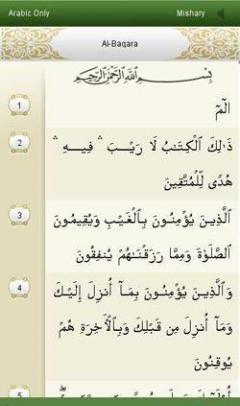 Arabic Only Mishary
Al-Baqara
بِسْمِ اللَّهِ الرَّحْمَٰنِ الرَّحِيمِ
1 الٓمٓ
2 ذَٰلِكَ ٱلْكِتَـٰبُ لَا رَيْبَ ۛ فِيهِ ۛ
هُدًى لِّلْمُتَّقِينَ
3 ٱلَّذِينَ يُؤْمِنُونَ بِٱلْغَيْبِ وَيُقِيمُونَ
ٱلصَّلَوٰةَ وَمِمَّا رَزَقْنَـٰهُمْ يُنفِقُونَ
4 وَٱلَّذِينَ يُؤْمِنُونَ بِمَآ أُنزِلَ إِلَيْكَ
وَمَآ أُنزِلَ مِن قَبْلِكَ وَبِٱلْـَٔاخِرَةِ هُمْ
يُوقِنُونَ
5